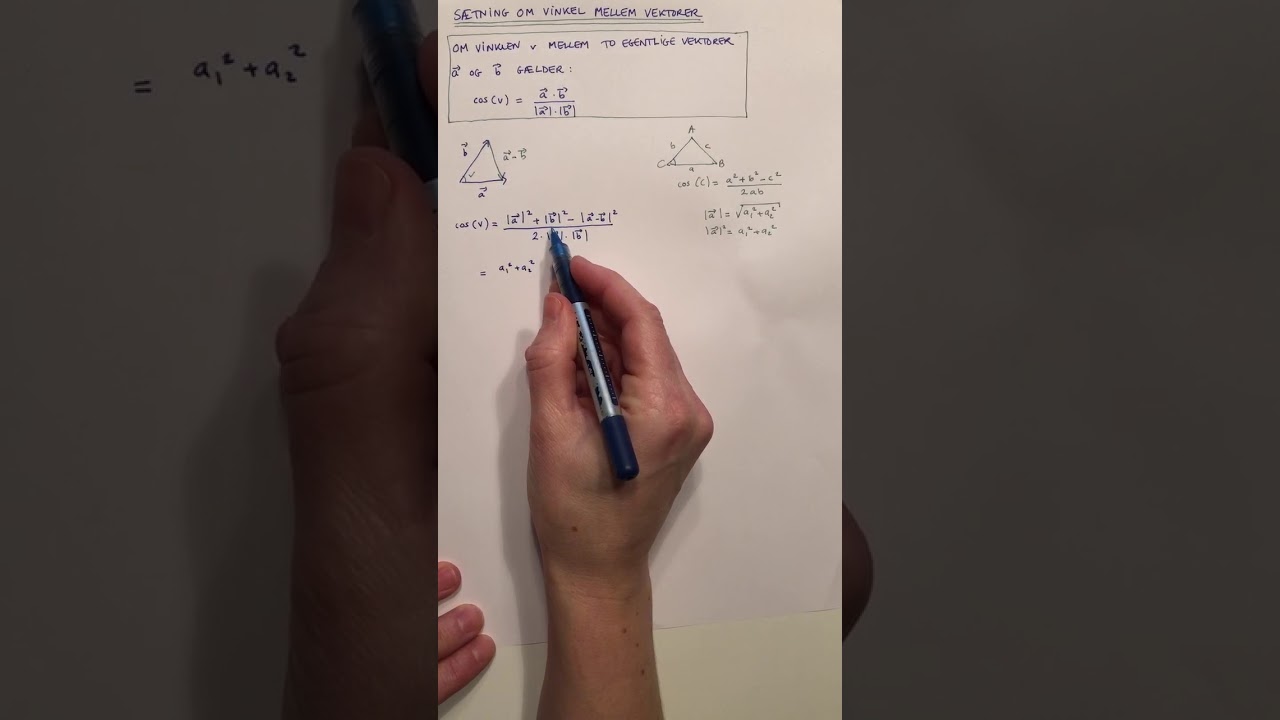 SÆTNING OM VINKEL MELLEM VEKTORER
OM VINKLEN v MELLEM TO EGENTLIGE VEKTORER
a⃗ OG b⃗ GÆLDER:
cos(v) = a⃗ · b⃗ / |a⃗| · |b⃗|
b⃗
a⃗ - b⃗
v
a⃗
A
b c
C B
a
cos(C) = a² + b² - c² / 2ab
|a⃗| = √a₁² + a₂²
|a⃗|² = a₁² + a₂²
cos(v) = |a⃗|² + |b⃗|² - |a⃗-b⃗|² / 2 · | | · |b⃗|
= a₁² + a₂²
= a₁² + a₂²